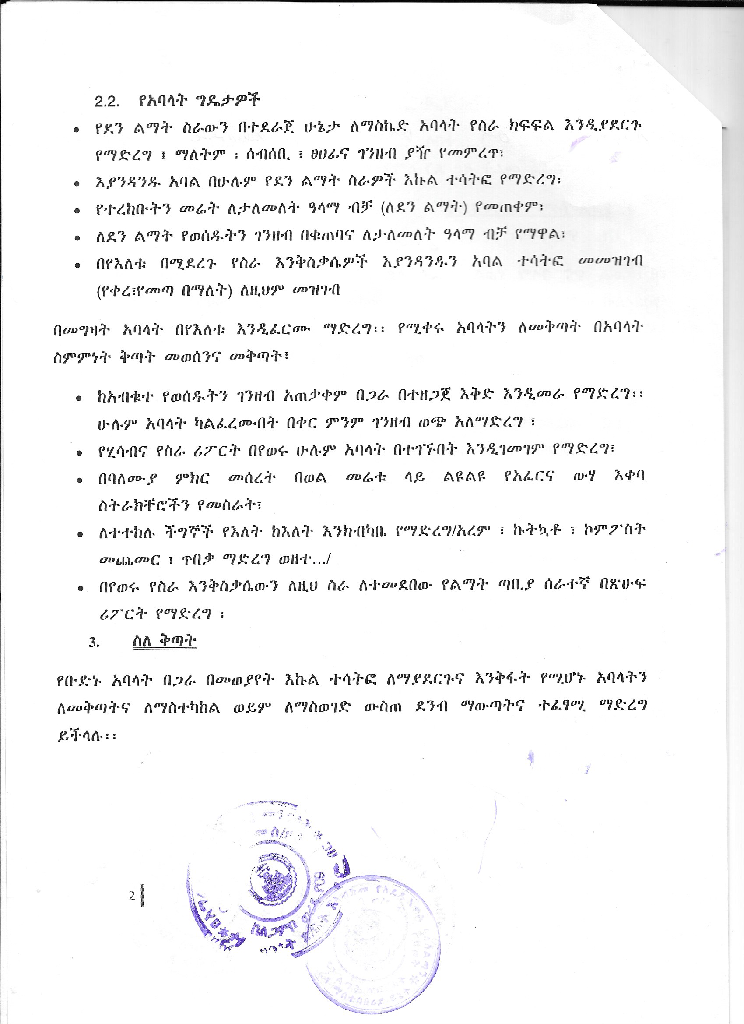 2.2. የአባላት ግዴታዎች
• የደን ልማት ስራውን በተደራጀ ሁኔታ ለማስኬድ አባላት የስራ ክፍፍል እንዲያደርጉ
የማድረግ ፤ ማለትም ፡ ሰብሰቢ ፤ ፀሀፊና ገንዘብ ያዥ የመምረጥ፡
• እያንዳንዱ አባል በሁሉም የደን ልማት ስራዎች እኩል ተሳትፎ የማድረግ፡
• የተረከቡትን መሬት ለታለመለት ዓላማ ብቻ (ለደን ልማት) የመጠቀም፡
• ለደን ልማት የወሰዱትን ገንዘብ በቁጠባና ለታለመለት ዓላማ ብቻ የማዋል፡
• በየእለቱ በሚደረጉ የስራ እንቅስቃሴዎች እያንዳንዱን አባል ተሳትፎ መመዝገብ
(የቀረ፡የመጣ በማለት) ለዚህም መዝገብ
በመግዛት አባላት በየእለቱ እንዲፈርሙ ማድረግ፡፡ የሚቀሩ አባላትን ለመቅጣት በአባላት
ስምምነት ቅጣት መወሰንና መቅጣት፤
• ከአብቁተ የወሰዱትን ገንዘብ አጠቃቀም በጋራ በተዘጋጀ እቅድ እንዲመራ የማድረግ፡፡
ሁሉም አባላት ካልፈረሙበት በቀር ምንም ገንዘብ ወጭ አለማድረግ ፡
• የሂሳብና የስራ ሪፖርት በየወሩ ሁሉም አባላት በተገኙበት እንዲገመገም የማድረግ፡
• በባለሙያ ምክር መሰረት በወል መሬቱ ላይ ልዩልዩ የአፈርና ውሃ እቀባ
ስትራክቸሮችን የመስራት፡
• ለተተከሉ ችግኞች የእለት ከእለት እንክብካቤ የማድረግ/አረም ፡ ኩትኳቶ ፡ ኮምፖስት
መጨመር ፡ ጥበቃ ማድረግ ወዘተ.../
• በየወሩ የስራ እንቅስቃሴውን ለዚህ ስራ ለተመደበው የልማት ጣቢያ ሰራተኛ በጽሁፍ
ሪፖርት የማድረግ ፡
3. ስለ ቅጣት
የቡድኑ አባላት በጋራ በመወያየት እኩል ተሳትፎ ለማያደርጉና እንቅፋት የሚሆኑ አባላትን
ለመቅጣትና ለማስተካከል ወይም ለማስወገድ ውስጠ ደንብ ማውጣትና ተፈፃሚ ማድረግ
ይችላሉ፡፡
2